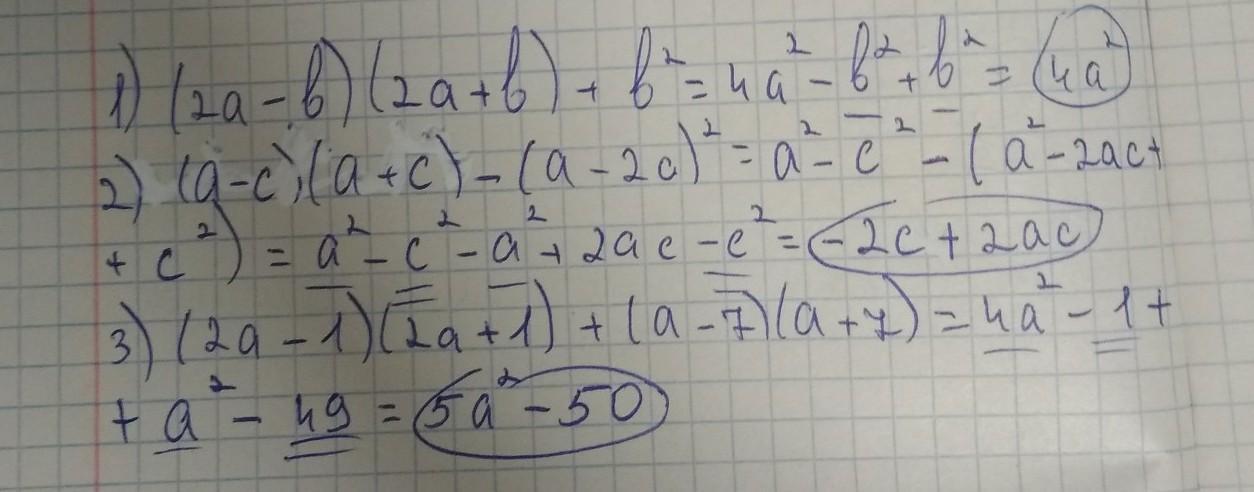 1) (2a - b)(2a + b) + b² = 4a² - b² + b² = 4a²
2) (a - c)(a + c) - (a - 2c)² = a² - c² - (a² - 2ac +
+ c²) = a² - c² - a² + 2ac - c² = -2c + 2ac
3) (2a - 1)(2a + 1) + (a - 7)(a + 7) = 4a² - 1 +
+ a² - 49 = 5a² - 50